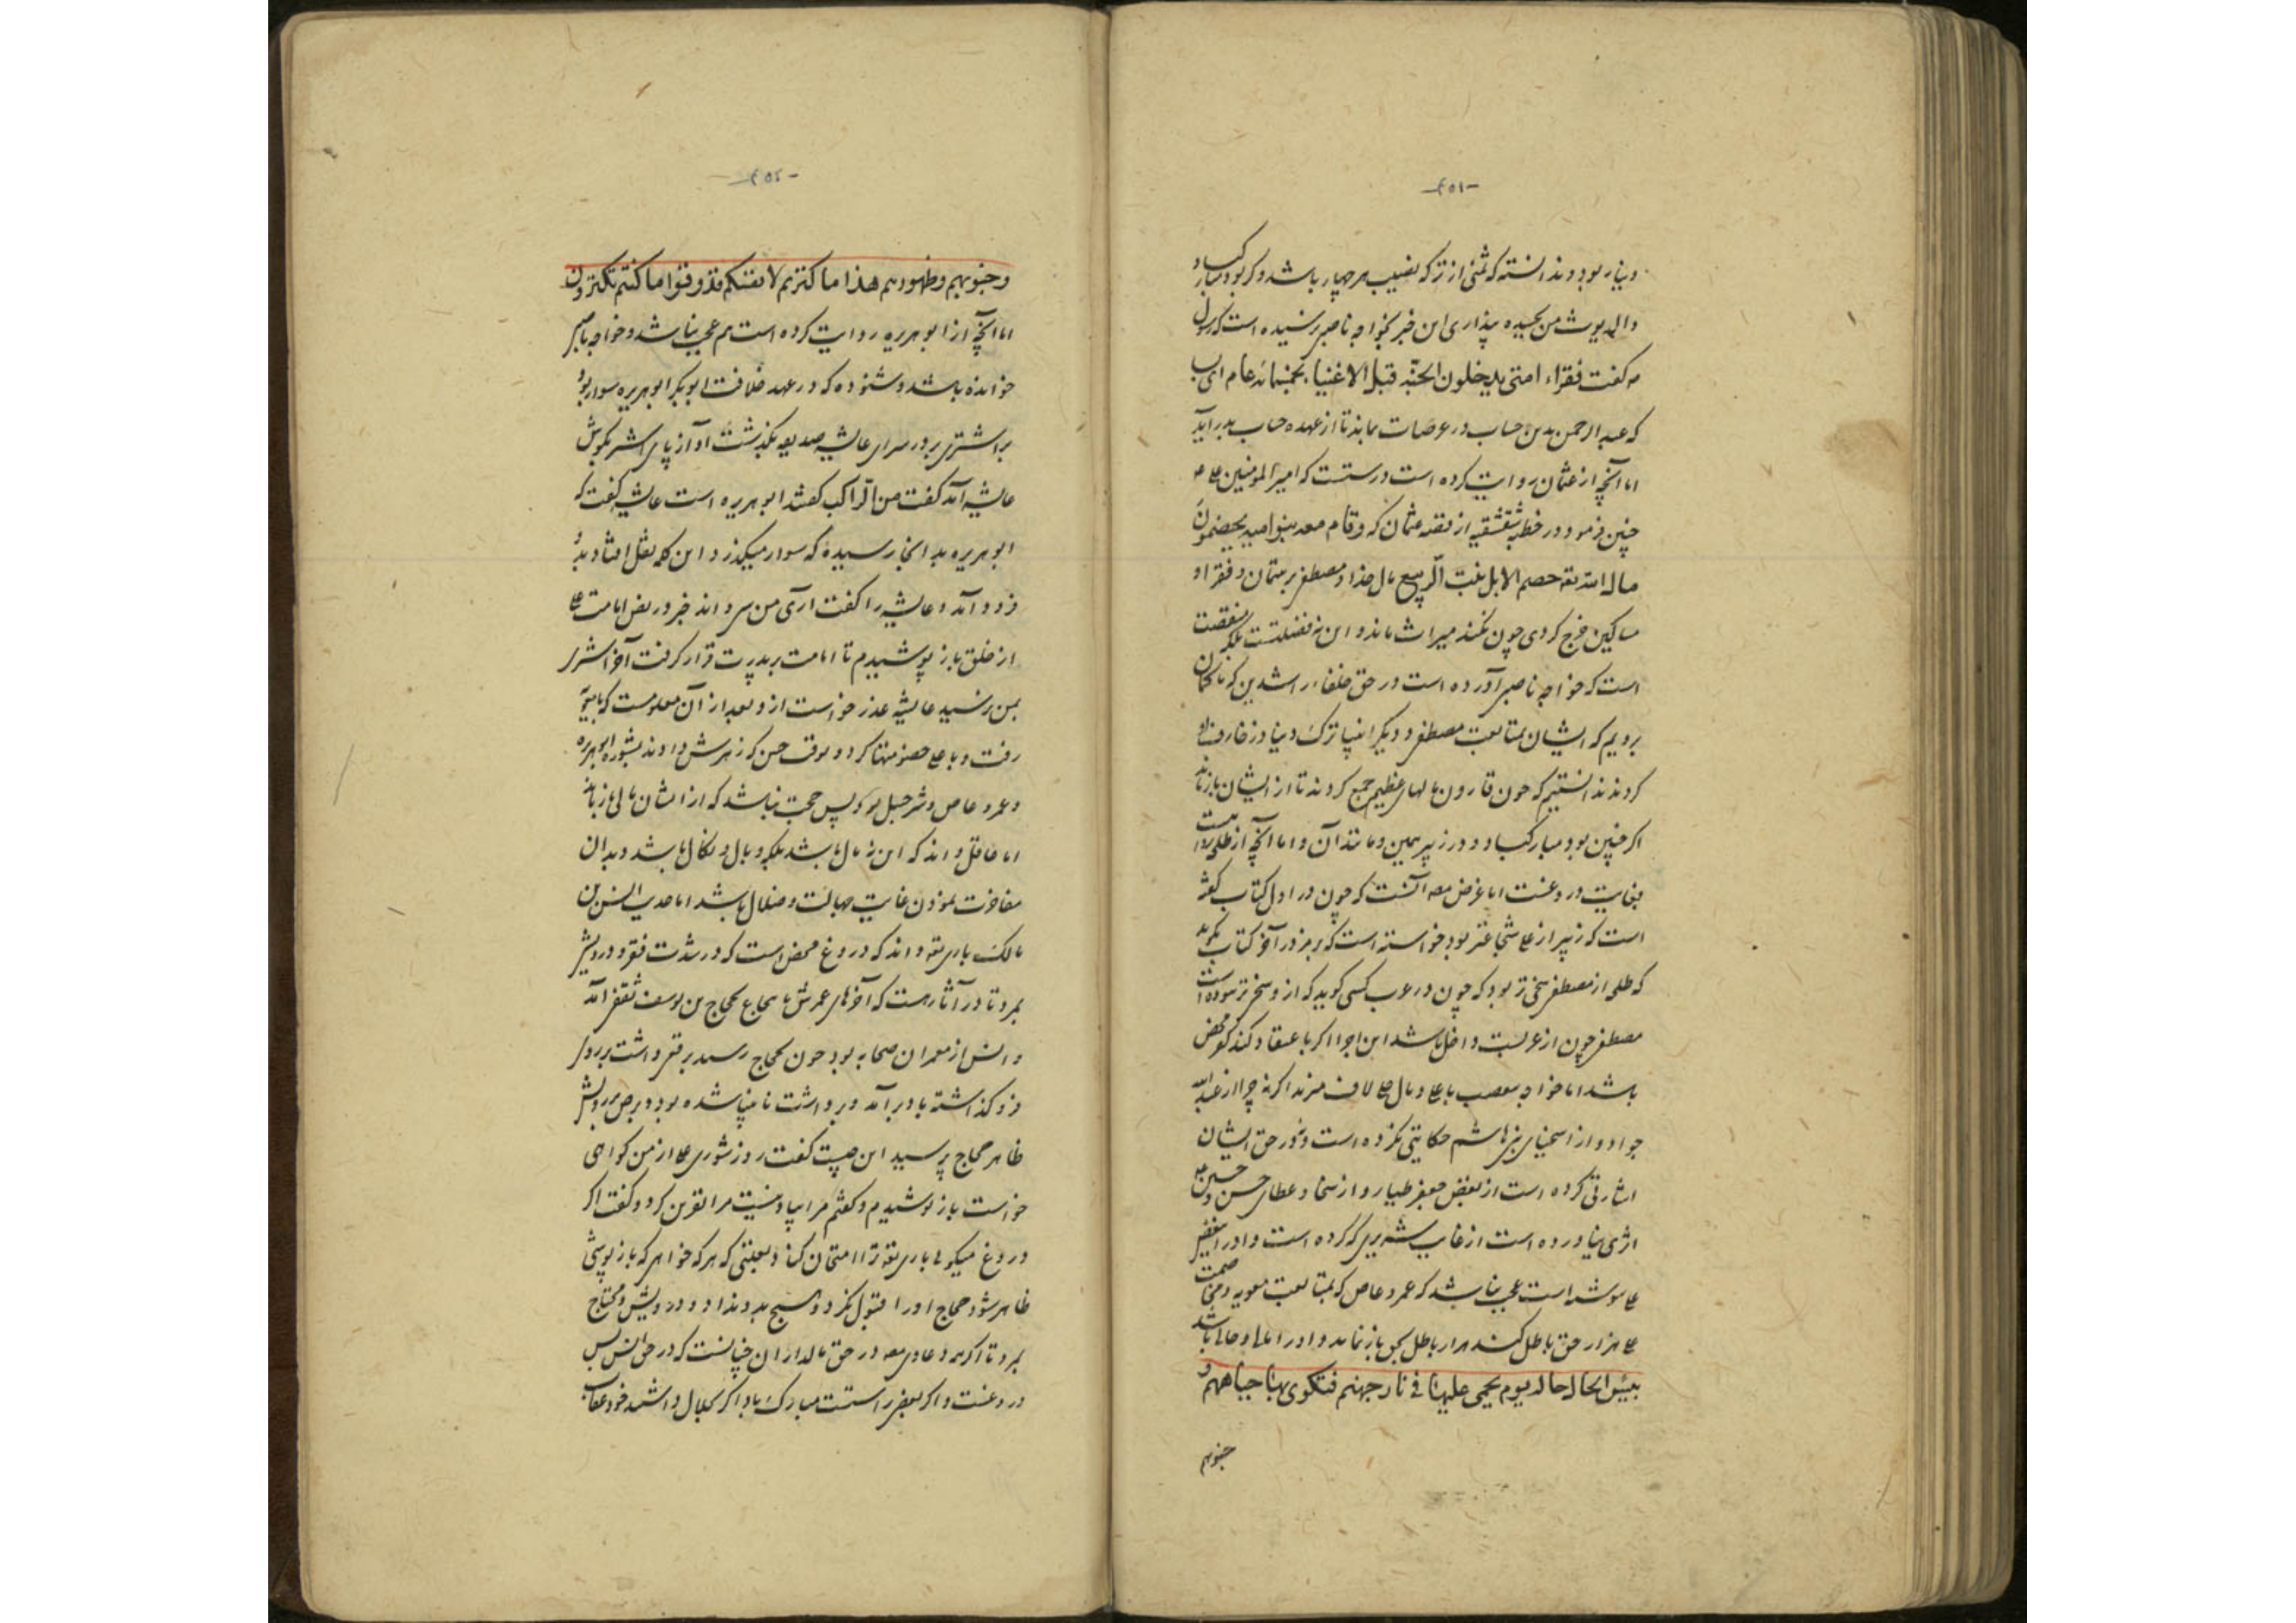 -۴۵۱-
دینار بود و ندانسته که ثمنی از ترکه نصیب هر چهار باشد و گر بود مبارکباد
و الدیوث من بحسیده پنداری این خبر بخواجه ناصبی نرسیده است که رسول
ص گفت فقراء امتی یدخلون الجنّة قبل الاغنیاء بخمسمائة عام ای بس
که عبد الرحمن بدین حساب در عرصات بماند تا از عهده حساب بدر آید
اما آنچه از عثمان روایت کرده است درستست که امیر المؤمنین علی ع
چنین فرمود در خطبه شقشقیه از فتنه عثمان که و قام معه بنو امیه یخضمون
مال الله تعه خضم الابل نبت الرّبیع مال خدا و مصطفی بر یتیمان و فقرا و
مساکین خرج کردی چون نکند میراث ماند و این نه فضیلتست بلکه منقصت
است که خواجه ناصبی آورده است در حق خلفاء راشدین که ما گمان
بردیم که ایشان بمتابعت مصطفی و دیگر انبیا ترک دنیا و زخارف او
کردند ندانستیم که چون قارون مالهای عظیم جمع کردند تا از ایشان باز ماند
اگر چنین بود مبارکباد و در زبیر همین و مانند آن و اما آنچه از طلحه روایت
بغایت دروغست اما غرض معه آنست که چون در اول کتاب گفته
است که زبیر از علی شجاعتر بود خواسته است که برمز در آخر کتاب بگوید
که طلحه از مصطفی سخی تر بود که چون در عرب کسی گوید که از و سخی تر نبوده است
مصطفی چون از عربست داخل باشد این اجرا اگر باعتقاد کند کفر محض
باشد اما خواجه بتعصب با علی و مال علی لاف میزند اگر نه چرا از عبد الله
جواد و از اسخیای بنی هاشم حکایتی نکرده است و نه در حق ایشان
اشارتی کرده است از بغض جعفر طیار و از سخا و عطای حسن و حسین ع
اثری نیاورده است از غایت شبهه یی که کرده است و او را بغض
علی نوشته است عجب نباشد که عمرو عاص که بمتابعت معویه و مخاصمت
علی هزار حق باطل کند هزار باطل بحق باز نماید و او را مالها و حالها باشد
بیس الحال حاله یوم یحمی علیها فی نار جهنم فتکوی بها جباههم و
جنوبهم
-۴۵۲-
و جنوبهم و ظهورهم هذا ما کنزتم لانفسکم فذوقوا ما کنتم تکنزون
اما آنچه از ابو هریره روایت کرده است هم عجب نباشد و خواجه ناصبی
خوانده باشد و شنوده که در عهد خلافت ابو بکر ابو هریره سوار بود
بر اشتری بر در سرای عایشه صدیقه بگذشت آواز پای اشتر بگوش
عایشه آمد گفت من الرّاکب گفتند ابو هریره است عایشه گفت که
ابو هریره بدانجا رسیده که سوار میگذرد این کلمه نقل افتاد بدو
فرود آمد و عایشه را گفت آری من سرواند خبر در نص امامت علی
از خلق باز پوشیدم تا امامت بر پدرت قرار گرفت آخر اشتری
بمن رسید عایشه عذر خواست از و بعد از آن معلومست که با معویه
رفت و با علی خصومتها کرد و بوقت حسن که زهرش دادند بشوره ابو هریره
و عمرو عاص و شرحبیل بود پس حجت نباشد که از ایشان مالی باز ماند
اما عاقل داند که این نه مال باشد بلکه وبال و نکال باشد و بدان
مفاخرت نمودن غایت جهالت و ضلال باشد اما حدیث انس بن
مالک باری تعه داند که دروغ محض است که در شدت فقر و درویشی
بمرد تا در آثار هست که آخرهای عمرش باسحاج بحجاج بن یوسف ثقفی آمد
و انس از معمران صحابه بود چون بحجاج رسید برقعی داشت بر روی
فرو گذاشته بادی برآمد و برداشت نابینا شده بود و برص بر رویش
ظاهر حجاج پرسید این چیست گفت روز شوری علی از من گواهی
خواست باز پوشیدم و گفتم مرا یاد نیست مرا نفرین کرد و گفت اگر
دروغ میگوئی باری تعه ترا امتحان کناد بعلتی که هر که خواهی که باز پوشی
ظاهر شود حجاج او را قبول نکرد و هیچ بدو نداد و درویش و محتاج
بمرد تا اگر همه دعاوی معه در حق مالداران چنانست که در حق انس پس
دروغست و اگر بعضی راستست مبارک باد اگر بحلال داشتند خود عقاب